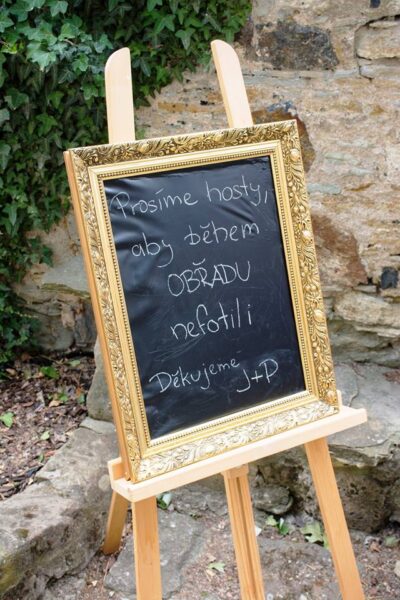 Prosíme hosty,
aby během
OBŘADU
nefotili
Děkujeme J+P